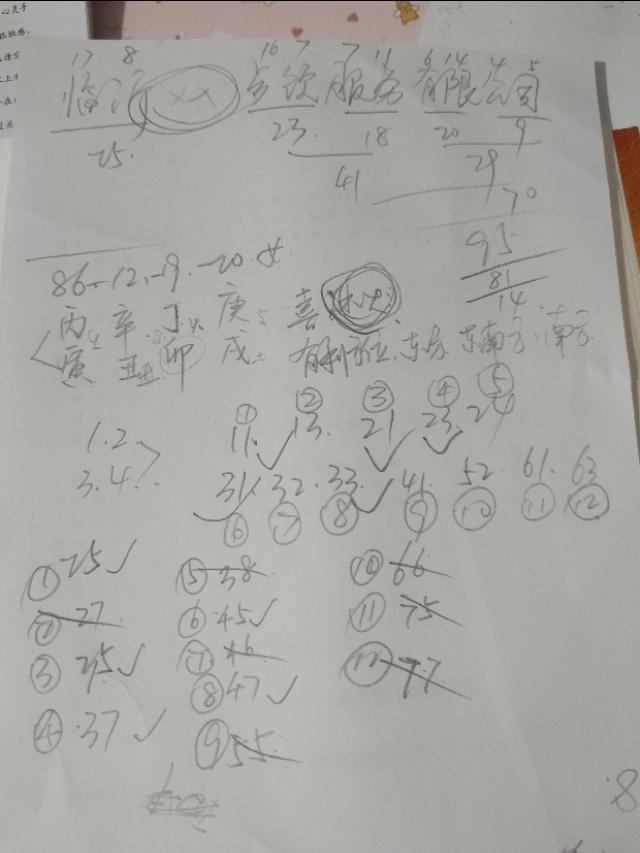 17 8 16 7 7 11 6 14 4 5
临沂 XX 餐饮服务有限公司
25. 23. 18 20 9
41 29
70
95
81
14
86-12-9.-20 女
丙 辛 丁火 庚 喜 木火
寅 丑土 卯 戌土 有利方位:东方.东南方.南方
① ② ③ ④ ⑤
1.2 11. 13. 21 23. 24
3.4 31. 32. 33. 41. 52. 61. 63
⑥ ⑦ ⑧ ⑨ ⑩ ⑪ ⑫
① 25 ✓ ⑤ 38 ⑩ 66
② 27 ⑥ 45 ✓ ⑪ 75
③ 35 ✓ ⑦ 46 ⑫ 77
④ 37 ✓ ⑧ 47 ✓
⑨ 55
8